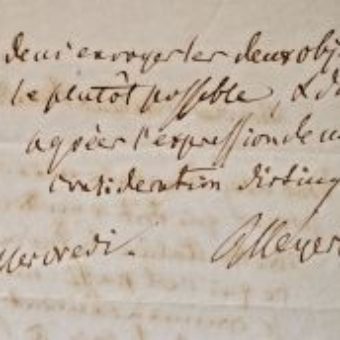 de m'envoyer les deux obj
le plutôt possible, & d'a
agréer l'expression de m
considération disting
Mercredi. GMeyer